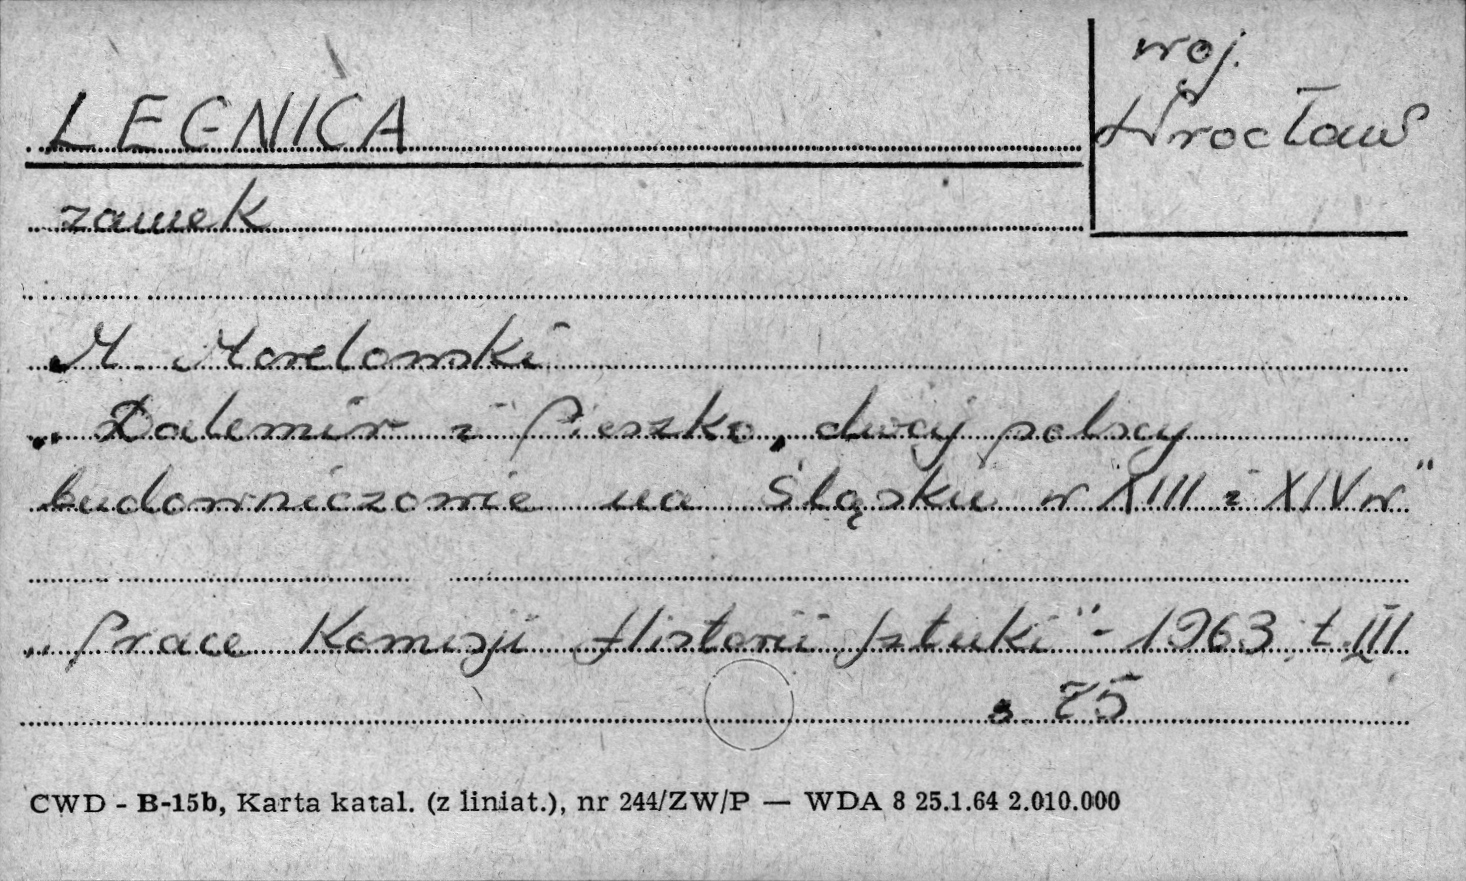 LEGNICA
woj.
Wrocław
zamek
M. Morelowski
„Dalemir i Pieszko, dwaj polscy
budowniczowie na Śląsku w XIII i XIV w"
„Prace Komisji Historii Sztuki" - 1963 t. III
s. 75
CWD - B-15b, Karta katal. (z liniat.), nr 244/ZW/P — WDA 8 25.1.64 2.010.000